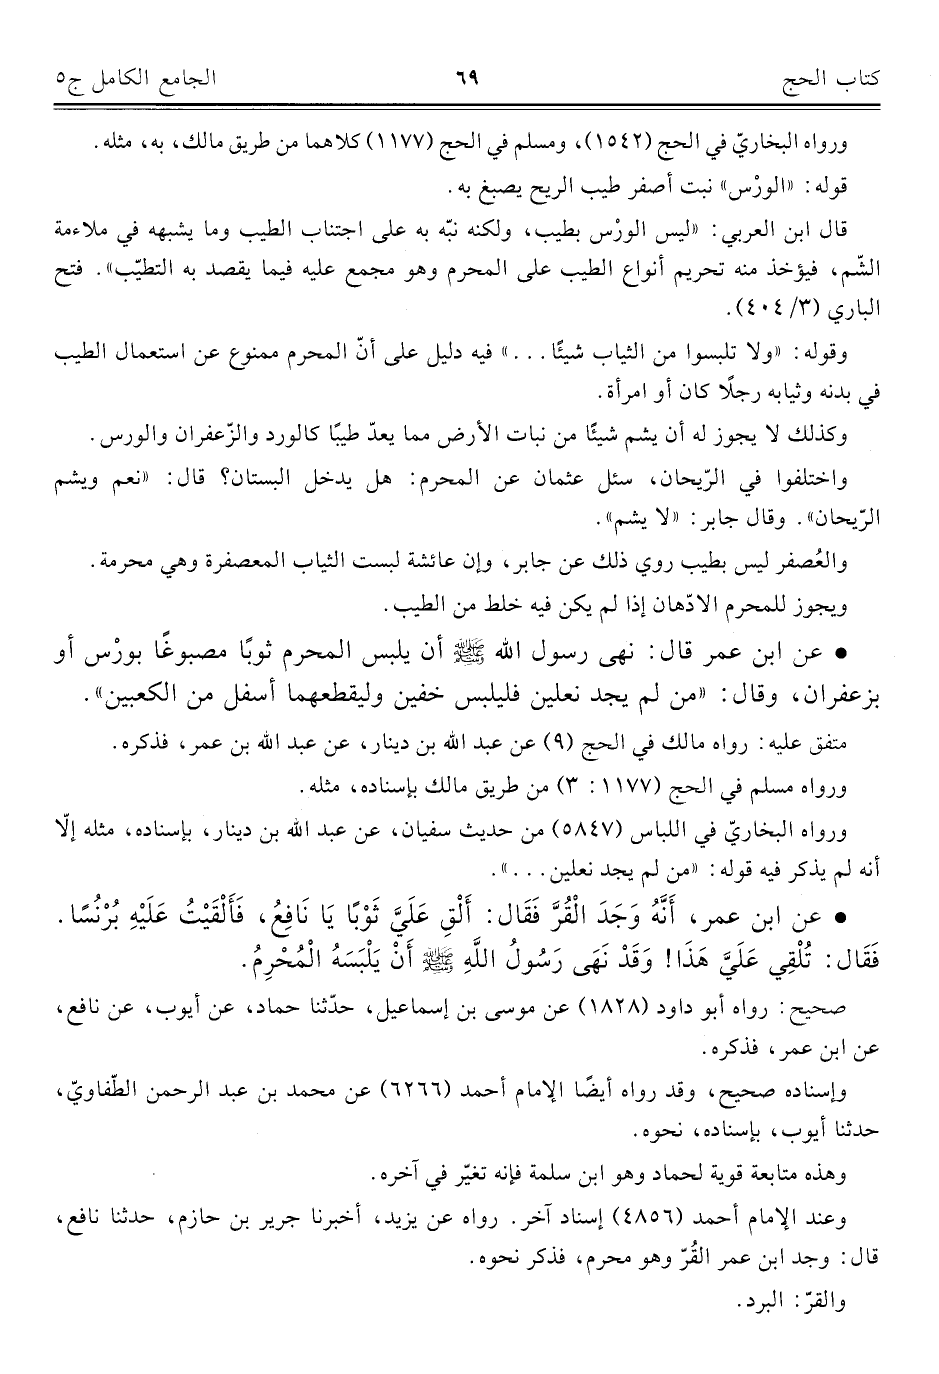 كتاب الحج ٦٩ الجامع الكامل ج٥
ورواه البخاريّ في الحج (١٥٤٢)، ومسلم في الحج (١١٧٧) كلاهما من طريق مالك، به، مثله.
قوله: «الورْس» نبت أصفر طيب الريح يصبغ به.
قال ابن العربي: «ليس الورْس بطيب، ولكنه نبّه به على اجتناب الطيب وما يشبهه في ملاءمة
الشّم، فيؤخذ منه تحريم أنواع الطيب على المحرم وهو مجمع عليه فيما يقصد به التطيّب». فتح
الباري (٣/ ٤٠٤).
وقوله: «ولا تلبسوا من الثياب شيئًا ...» فيه دليل على أنّ المحرم ممنوع عن استعمال الطيب
في بدنه وثيابه رجلًا كان أو امرأة.
وكذلك لا يجوز له أن يشم شيئًا من نبات الأرض مما يعدّ طيبًا كالورد والزّعفران والورس.
واختلفوا في الرّيحان، سئل عثمان عن المحرم: هل يدخل البستان؟ قال: «نعم ويشم
الرّيحان». وقال جابر: «لا يشم».
والعُصفر ليس بطيب روي ذلك عن جابر، وإن عائشة لبست الثياب المعصفرة وهي محرمة.
ويجوز للمحرم الادّهان إذا لم يكن فيه خلط من الطيب.
• عن ابن عمر قال: نهى رسول الله ﷺ أن يلبس المحرم ثوبًا مصبوغًا بورْس أو
بزعفران، وقال: «من لم يجد نعلين فليلبس خفين وليقطعهما أسفل من الكعبين».
متفق عليه: رواه مالك في الحج (٩) عن عبد الله بن دينار، عن عبد الله بن عمر، فذكره.
ورواه مسلم في الحج (١١٧٧: ٣) من طريق مالك بإسناده، مثله.
ورواه البخاريّ في اللباس (٥٨٤٧) من حديث سفيان، عن عبد الله بن دينار، بإسناده، مثله إلّا
أنه لم يذكر فيه قوله: «من لم يجد نعلين...».
• عن ابن عمر، أَنَّهُ وَجَدَ الْقُرَّ فَقَال: أَلْقِ عَلَيَّ ثَوْبًا يَا نَافِعُ، فَأَلْقَيْتُ عَلَيْهِ بُرْنُسًا.
فَقَال: تُلْقِي عَلَيَّ هَذَا! وَقَدْ نَهَى رَسُولُ اللَّهِ ﷺ أَنْ يَلْبَسَهُ الْمُحْرِمُ.
صحيح: رواه أبو داود (١٨٢٨) عن موسى بن إسماعيل، حدّثنا حماد، عن أيوب، عن نافع،
عن ابن عمر، فذكره.
وإسناده صحيح، وقد رواه أيضًا الإمام أحمد (٦٢٦٦) عن محمد بن عبد الرحمن الطّفاويّ،
حدثنا أيوب، بإسناده، نحوه.
وهذه متابعة قوية لحماد وهو ابن سلمة فإنه تغيّر في آخره.
وعند الإمام أحمد (٤٨٥٦) إسناد آخر. رواه عن يزيد، أخبرنا جرير بن حازم، حدثنا نافع،
قال: وجد ابن عمر القُرّ وهو محرم، فذكر نحوه.
والقرّ: البرد.